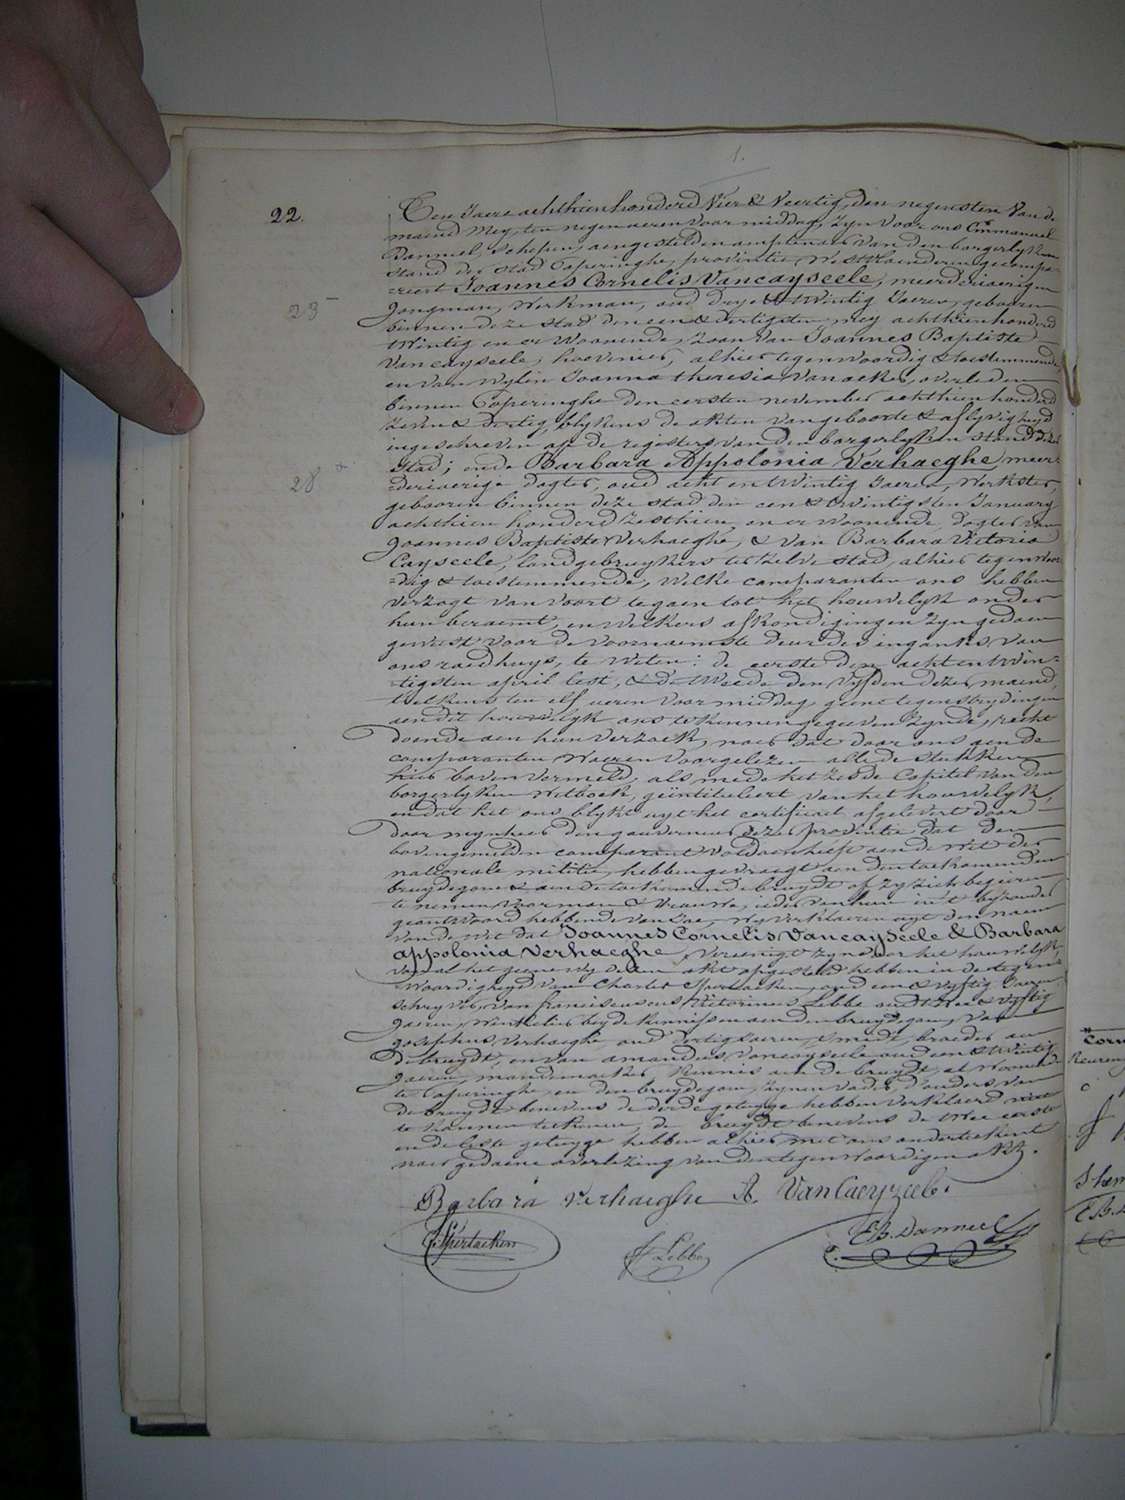 1.
22.
Ten Jaere achthienhonderd Vier & Veertig, den negensten Van de
maend Mey, ten negen ueren voor middag, Zyn Voor ons Emmanuel
Danneel, Schepen, aengestelden amptenaer Van den borgerlyken
Stand der Stad Poperinghe, provintie Westvlaenderen gecompa-
-reert Joannes Cornelis Vancayseele, meerderiaerigen
23
Jongman, Werkman, oud drye & twintig Jaeren, gebooren
binnen deze Stad den een & dertigsten mey achthienhonderd
twintig en er Woonende, Zoon Van Joannes Baptiste
Vancayseele, hovenier, alhier tegenwoordig & toestemmende,
en Van Wylen Joanna theresia Vanacker, overleden
binnen Poperinghe den eersten november achthien honderd
Zeven & dertig, blykens de akten van geboorte & aflyvigheyd
ingeschreven op de registers van den borgerlyken Stand dezer
Stad; ende Barbara Appolonia Verhaeghe, meer-
28
-deriaerige Dogter, oud acht en twintig Jaeren, Werkster,
gebooren binnen deze Stad den een & twintigsten January
achthien honderd Zesthien, en er Woonende, Dogter van
Joannes Baptiste Verhaeghe, & Van Barbara Victoria
Cayseele, landgebruykers ter Zelve Stad, alhier tegenwoor-
-dig & toestemmende, Welke comparanten ons hebben
verzogt van Voort te gaen tot het houwelyk onder
hun beraemt, en Welkers afkondigingen Zyn gedaen
geweest Voor de Voornaemste deur der ingank van
ons raedhuys, te Weten: de eerste den acht en twin-
-tigsten april lest, & de tweede den Vyfden dezer maend,
telkens ten elf ueren Voormiddag, geene tegenstrydingen
aen dit houwelyk ons te kennen gegeven Zynde, recht
doende aen hun Verzoek, naer dat door ons aen de
comparanten Waeren Voorgelezen alle de Stukken
hier boven Vermeld, als mede het Zesde Capitel van den
borgerlyken Wetboek, geïntituleert van het houwelyk,
en dat het ons blykt uyt het certificaet afgelevert door
door mynheer den gouverneur dezer provintie dat den
bovengemelden comparant Voldaen heeft aen de Wet der
nationale militie, hebben gevraegt aen den toekomenden
bruydegom & aen de toekomende bruydt of Zy Zich begeiren
te nemen Voor man & Vrauwe, ieder van hun in't byzonder
geantwoord hebbende Van Jae, Wy Verklaeren uyt den naem
Van de Wet dat Joannes Cornelis Vancayseele & Barbara
appolonia Verhaeghe, Vereenigt Zyn door het houwelyk,
Van al het geene Wy dezen akt opgesteld hebben in de tegen-
Woordigheyd van Charles Spertacken, oud een & Vyftig Jaeren
Schryver, Van franciscus Victorinus Lebbe oud twee & Vyftig
Jaeren, Winkelier beyde kennissen aen den bruydegom, Van
Josephus Verhaeghe oud dertig Jaeren, Smidt, broeder aen
de bruydt, en van amandus Vancayseele oud een & twintig
Jaeren, mandemaeker, kennis aen de bruydt, al Woonende
te Poperinghe, en den bruydegom, Zynen Vader, d'ouders van
de bruydt benevens de derde getuyge hebben verklaerd niet
te kunnen teekenen, de bruydt benevens de twee eerste
en de leste getuyge hebben alhier met ons onderteekent
naer gedaene overlezing van den tegenwoordigen akt.
Barbara Verhaeghe A. VanCaeyzeele
C. Spertacken
F. Lebbe
Eb. Danneel
Corn